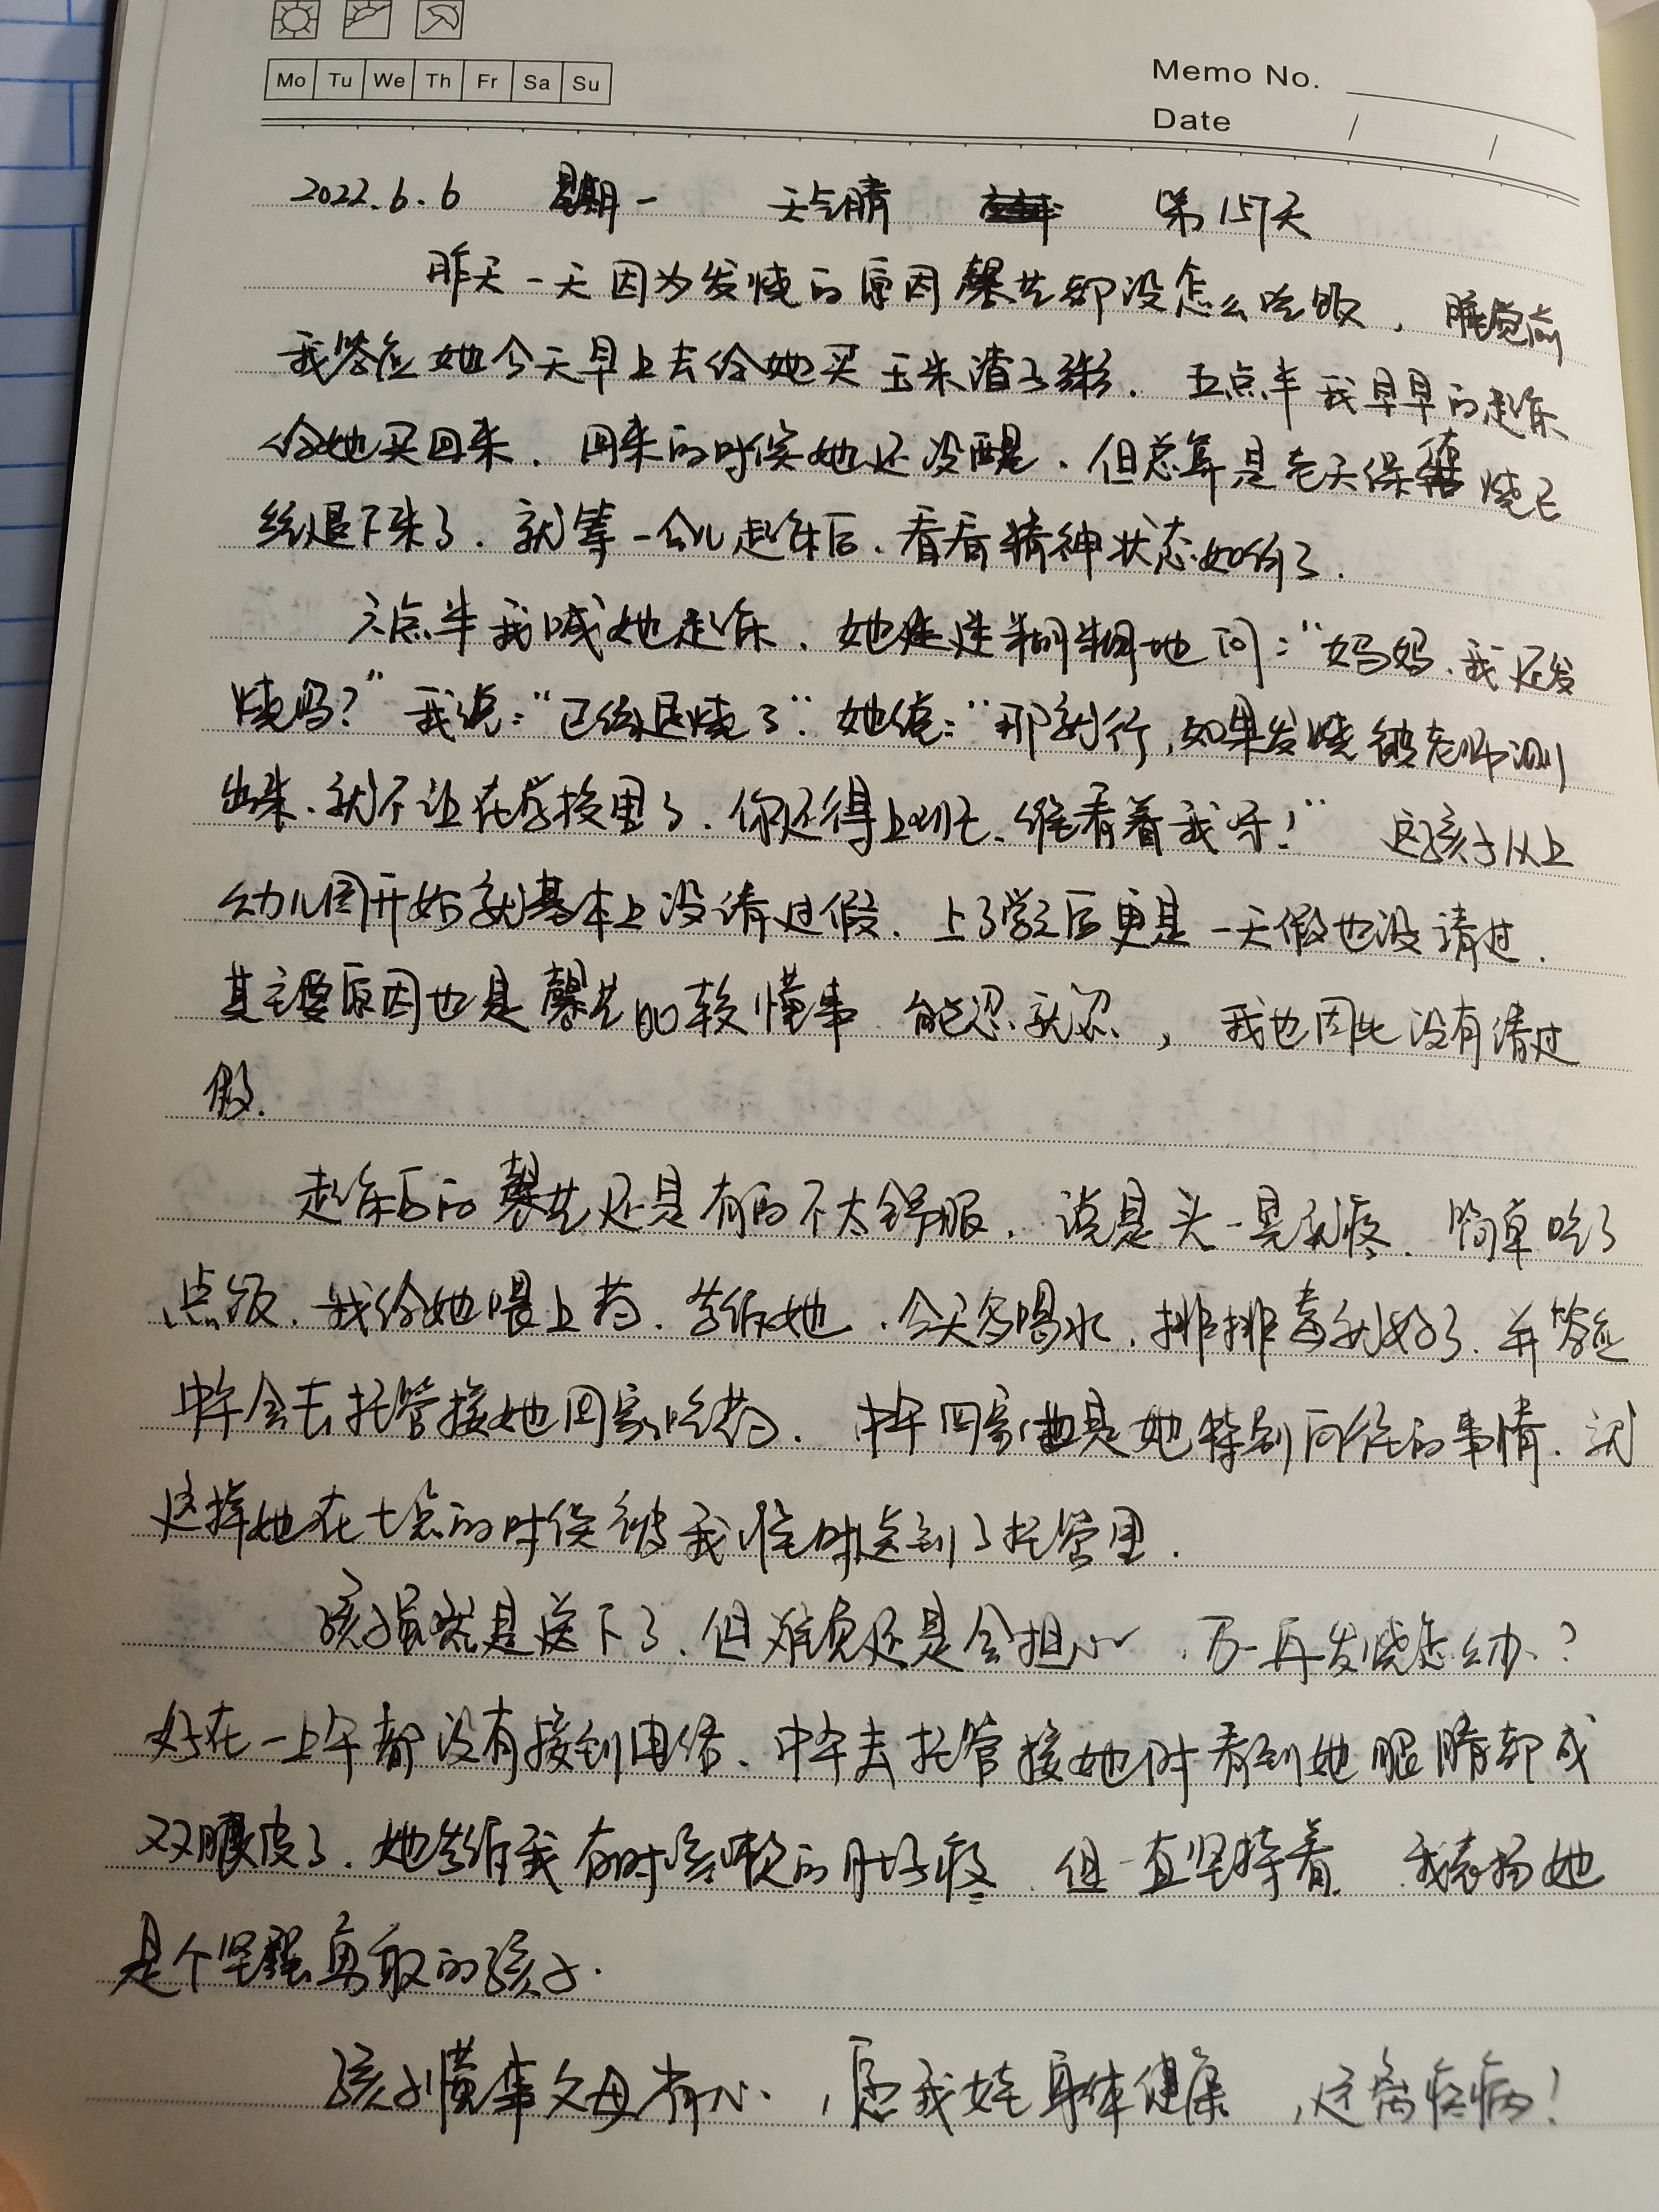 Mo Tu We Th Fr Sa Su
Memo No.
Date / /
2022.6.6 星期一 天气晴 第157天
昨天一天因为发烧的原因馨艺都没怎么吃饭，睡觉前
我答应她今天早上去给她买玉米渣子粥.五点半我早早的起床
给她买回来.回来的时候她还没醒.但总算是老天保佑烧已
经退下来了.就等一会儿起床后.看看精神状态如何了.
六点半我喊她起床.她迷迷糊糊地问:“妈妈.我还发
烧吗?”我说:“已经退烧了”.她说:“那就行,如果发烧被老师测
出来.就不让在学校里了.你还得上班.谁看着我呀!”这孩子从上
幼儿园开始就基本上没请过假.上了学之后更是一天假也没请过.
其主要原因也是馨艺比较懂事 能忍就忍，我也因此没有请过
假.
起床后的馨艺还是有的不太舒服.说是头一晃就疼.简单吃了
点饭.我给她喂上药.告诉她.今天多喝水.排排毒就好了.并答应
中午会去托管接她回家吃药.中午回家也是她特别向往的事情.就
这样她在七点的时候被我准时送到了托管里.
孩子虽然是送下了.但难免还是会担心.万一再发烧怎么办?
好在一上午都没有接到电话.中午去托管接她时看到她眼睛都成
双眼皮了.她告诉我有时咳嗽的肚子疼 但一直坚持着.我表扬她
是个坚强勇敢的孩子.
孩子懂事父母省心，愿我娃身体健康，远离疾病!